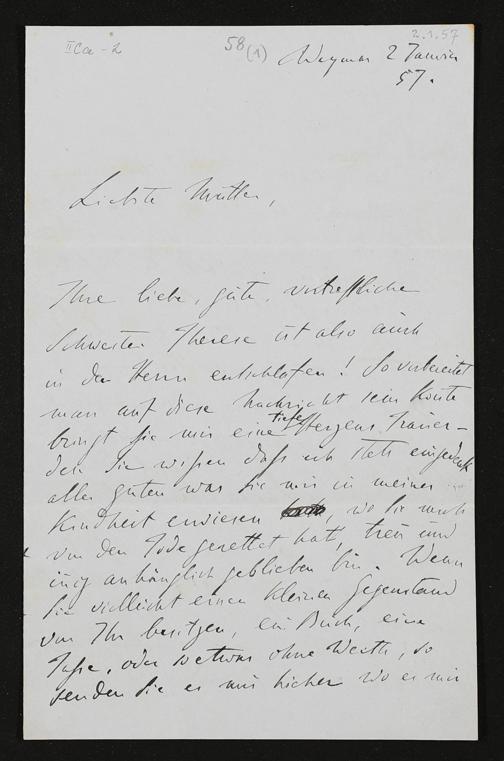 IICa-2
58 (1)
2.1.57
Weymar 2 Janvier
57.
Liebste Mutter,
Ihre liebe, gute, vortreffliche
Schwester Therese ist also auch
in den Herrn entschlafen! So vorbereitet
man auf diese Nachricht sein konte
bringt sie mir eine tiefe Herzens Trauer –
den Sie wissen dass ich stets eingedenk
alles guten was sie mir in meiner
Kindheit erwiesen, wo sie mich
von den Tode gerettet hat, treu und
inig anhänglich geblieben bin. Wenn
Sie vielleicht einen kleinen Gegenstand
von Ihr besitzen, ein Buch, eine
Tasse, oder so etwas ohne Werth, so
senden Sie es mir hieher wo es mir